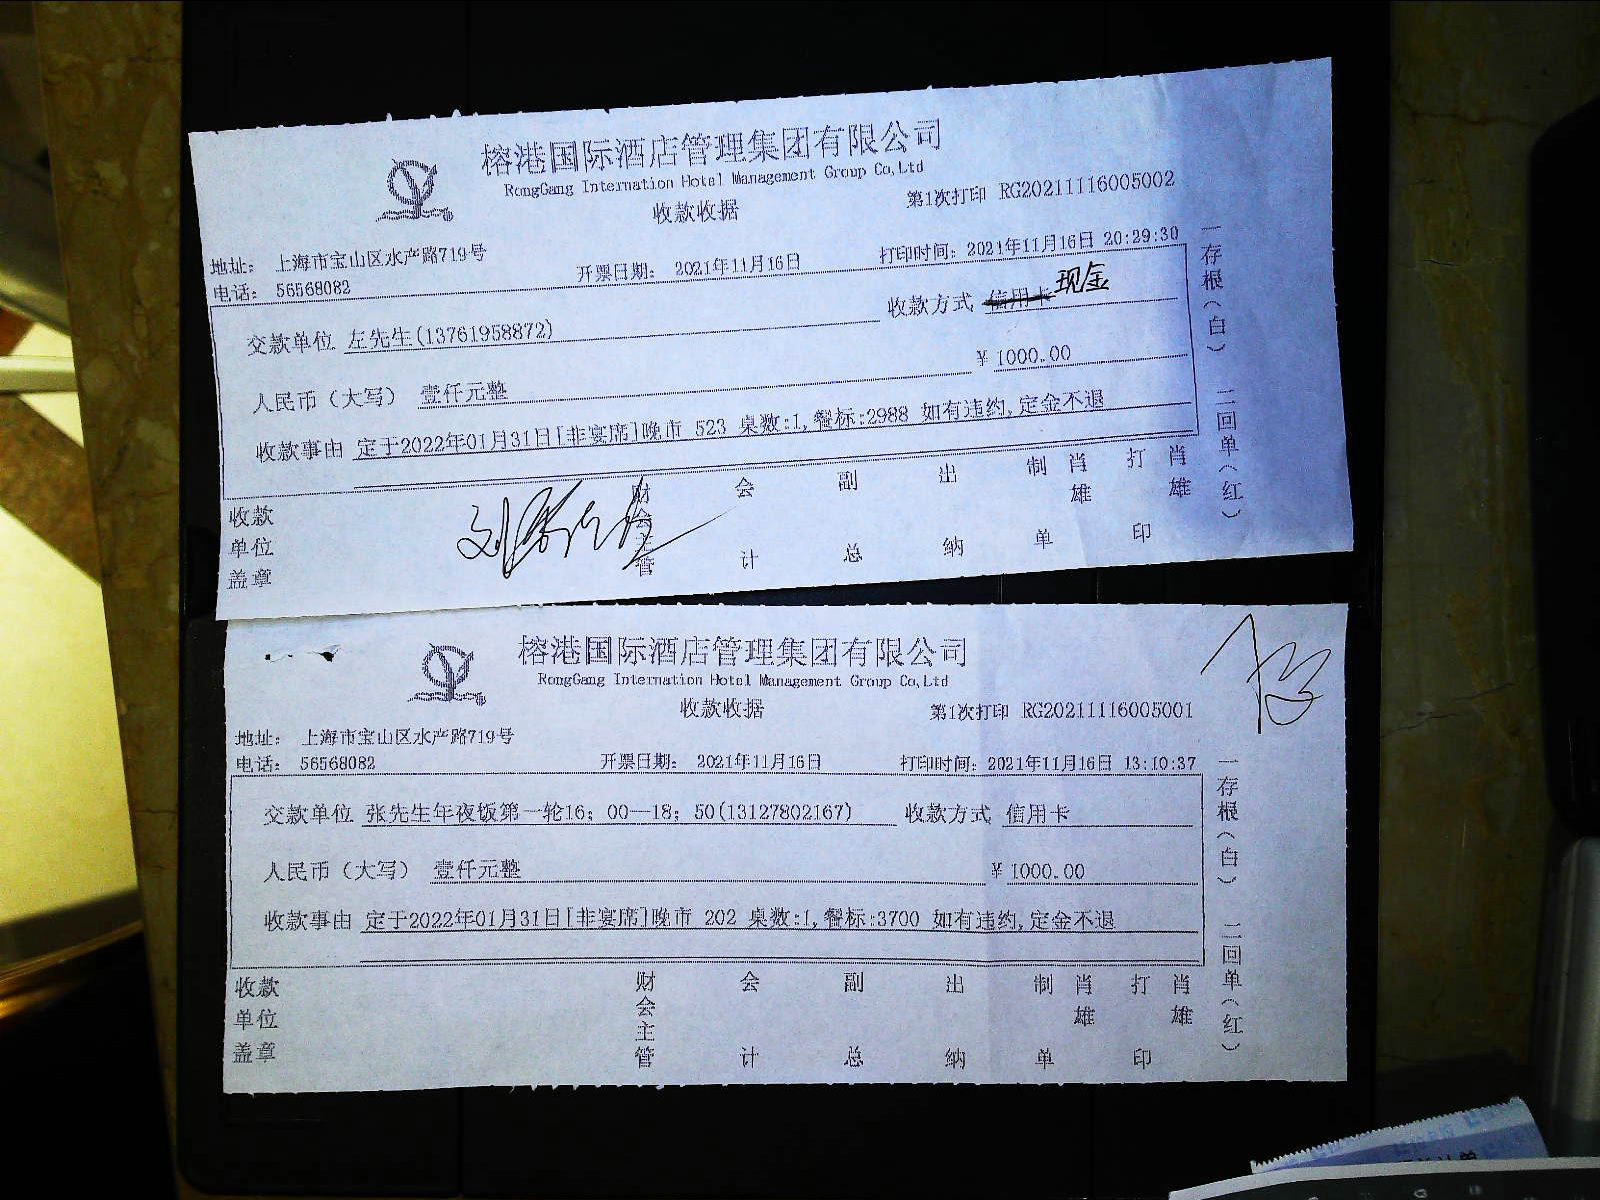 榕港国际酒店管理集团有限公司
RongGang Internation Hotel Management Group Co,Ltd
收款收据
第1次打印 RG20211116005002
地址: 上海市宝山区水产路719号
电话: 56568082
开票日期: 2021年11月16日
打印时间: 2021年11月16日 20:29:30
交款单位 左先生(13761958872)
收款方式 信用卡 现金
人民币(大写) 壹仟元整
¥ 1000.00
收款事由 定于2022年01月31日[非宴席]晚市 523 桌数:1,餐标:2988 如有违约,定金不退
收款单位盖章
财会主管
会计
副总
出纳
制单
肖雄
打印
肖雄
一存根(白) 二回单(红)
榕港国际酒店管理集团有限公司
RongGang Internation Hotel Management Group Co,Ltd
收款收据
第1次打印 RG20211116005001
地址: 上海市宝山区水产路719号
电话: 56568082
开票日期: 2021年11月16日
打印时间: 2021年11月16日 13:10:37
交款单位 张先生年夜饭第一轮16;00—18;50(13127802167)
收款方式 信用卡
人民币(大写) 壹仟元整
¥ 1000.00
收款事由 定于2022年01月31日[非宴席]晚市 202 桌数:1,餐标:3700 如有违约,定金不退
收款单位盖章
财会主管
会计
副总
出纳
制单
肖雄
打印
肖雄
一存根(白) 二回单(红)